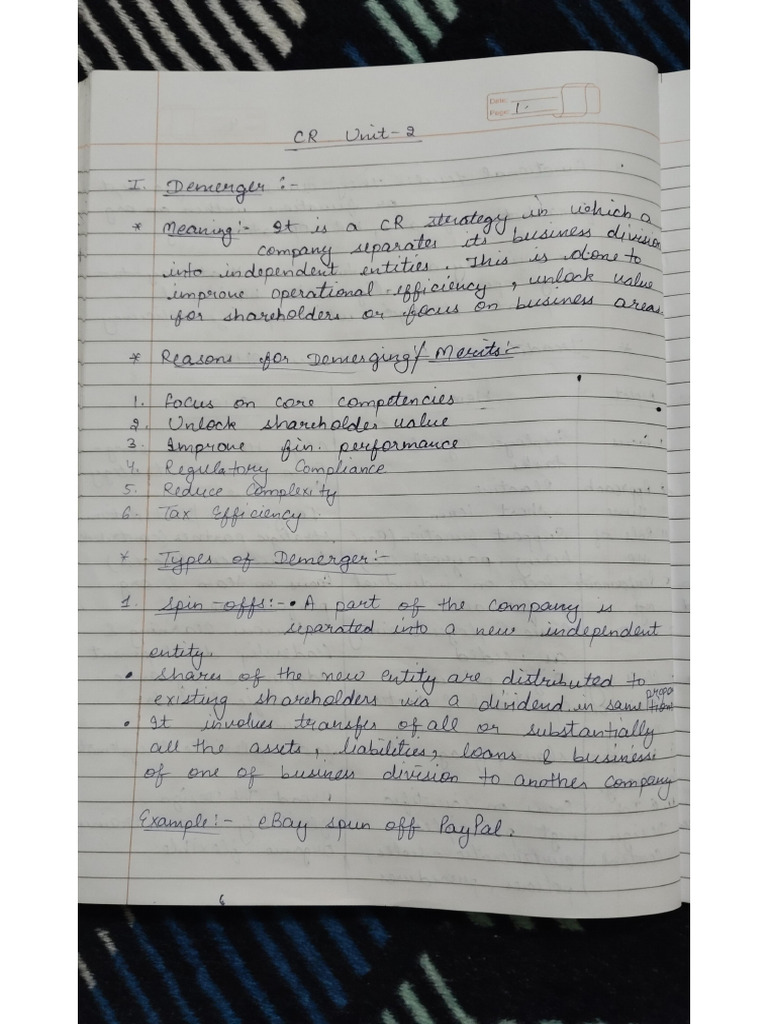 Date:
Page: 1.
CR Unit-2
I. Demerger :-
* Meaning:- It is a CR strategy in which a
company separates its business division
into independent entities. This is done to
improve operational efficiency, unlock value
for shareholders or focus on business areas
* Reasons for Demerging/ Merits:-
1. Focus on core competencies
2. Unlock shareholder value
3. Improve fin. performance
4. Regulatory Compliance
5. Reduce Complexity
6. Tax Efficiency
* Types of Demerger:-
1. Spin-offs:- • A part of the company is
separated into a new independent
entity.
• Shares of the new entity are distributed to
existing shareholders via a dividend in same propo
tion
• It involves transfer of all or substantially
all the assets, liabilities, loans & business
of one of business division to another company
Example:- eBay spun off PayPal.